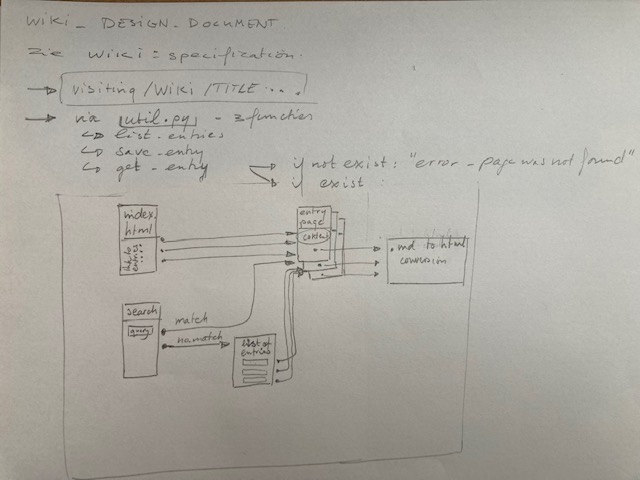 WIKI_ DESIGN_DOCUMENT
zie WIKI: specification.
→ visiting /WIKI /TITLE ....
→ via util.py - 3 functies
↳ list_entries
↳ save_entry
↳ get_entry
→ if not exist: "error - page was not found"
→ if exist:
index.
html
entries
entry
page
content
.md to html
conversion
search
query
match
no match
list of
entries